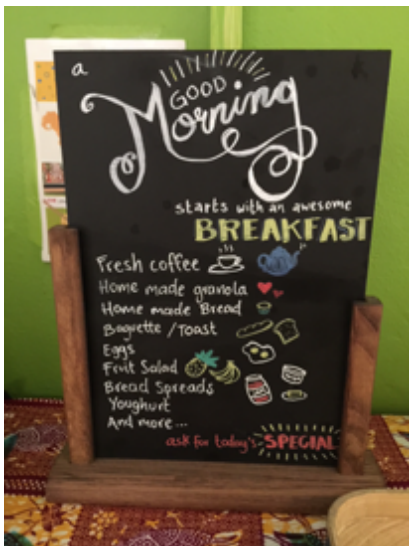 a
GOOD
Morning
starts with an awesome
BREAKFAST
Fresh coffee
Home made granola
Home made Bread
Baguette / Toast
Eggs
Fruit Salad
Bread Spreads
Youghurt
And more...
ask for today's SPECIAL